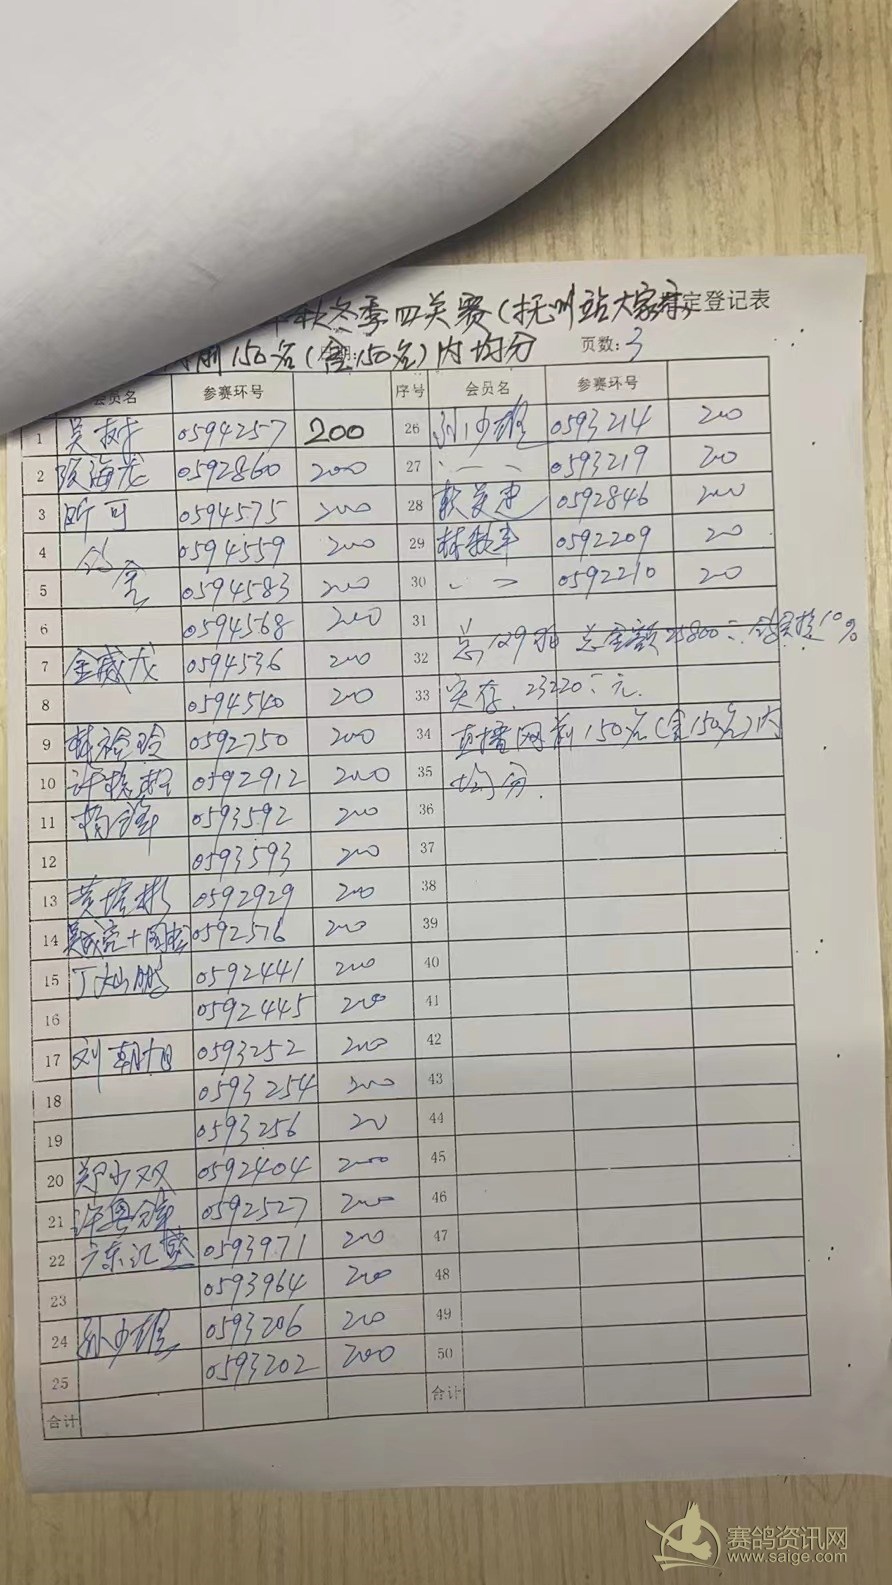 秋冬季四关赛(抚州站大家 指定登记表
前150名(含150名)内均分 页数:3
会员名 参赛环号 序号 会员名 参赛环号
1 吴 0594257 200 26 孙少雄 0593214 200
2 陈海龙 0592860 200 27 0593219 200
3 昕可 0594575 200 28 0592846 200
4 0594559 200 29 林 0592209 200
5 0594583 200 30 0592210 200
6 0594568 200 31
7 金威龙 0594536 200 32 总129羽 总金额25800元 10%
8 0594540 200 33 实存 23220元
9 林 玲 0592750 200 34 直播网前150名(含150名)内
10 许 0592912 200 35 均分
11 杨锋 0593592 200 36
12 0593593 200 37
13 黄培彬 0592929 200 38
14 0592576 200 39
15 丁灿鹏 0592441 200 40
16 0592445 200 41
17 刘朝旭 0593252 200 42
18 0593254 200 43
19 0593256 200 44
20 郑少双 0592404 200 45
21 许 0592527 200 46
22 广东汇盛 0593971 200 47
23 0593964 200 48
24 孙少雄 0593206 200 49
25 0593202 200 50
合计 合计
赛鸽资讯网
www.saige.com